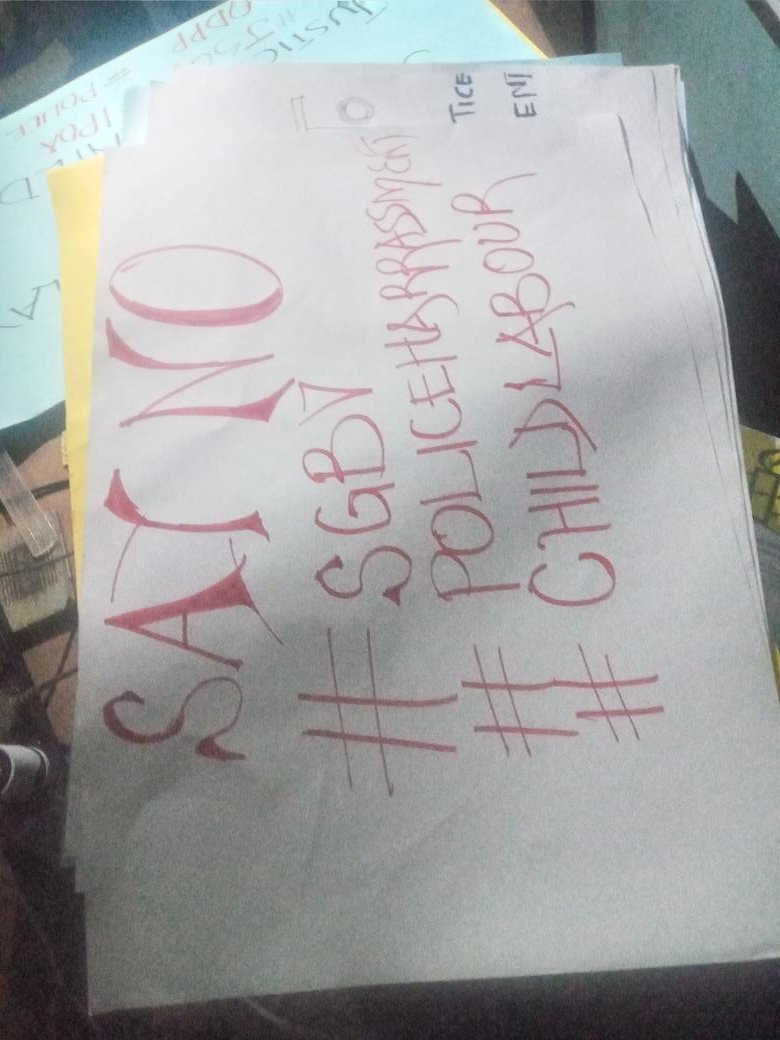 SAY NO
# SGBV
# POLICE HARRASSMENT
# CHILD LABOUR
TICE
ENT
JUSTIC
ODPP
# POLICE
IPOA